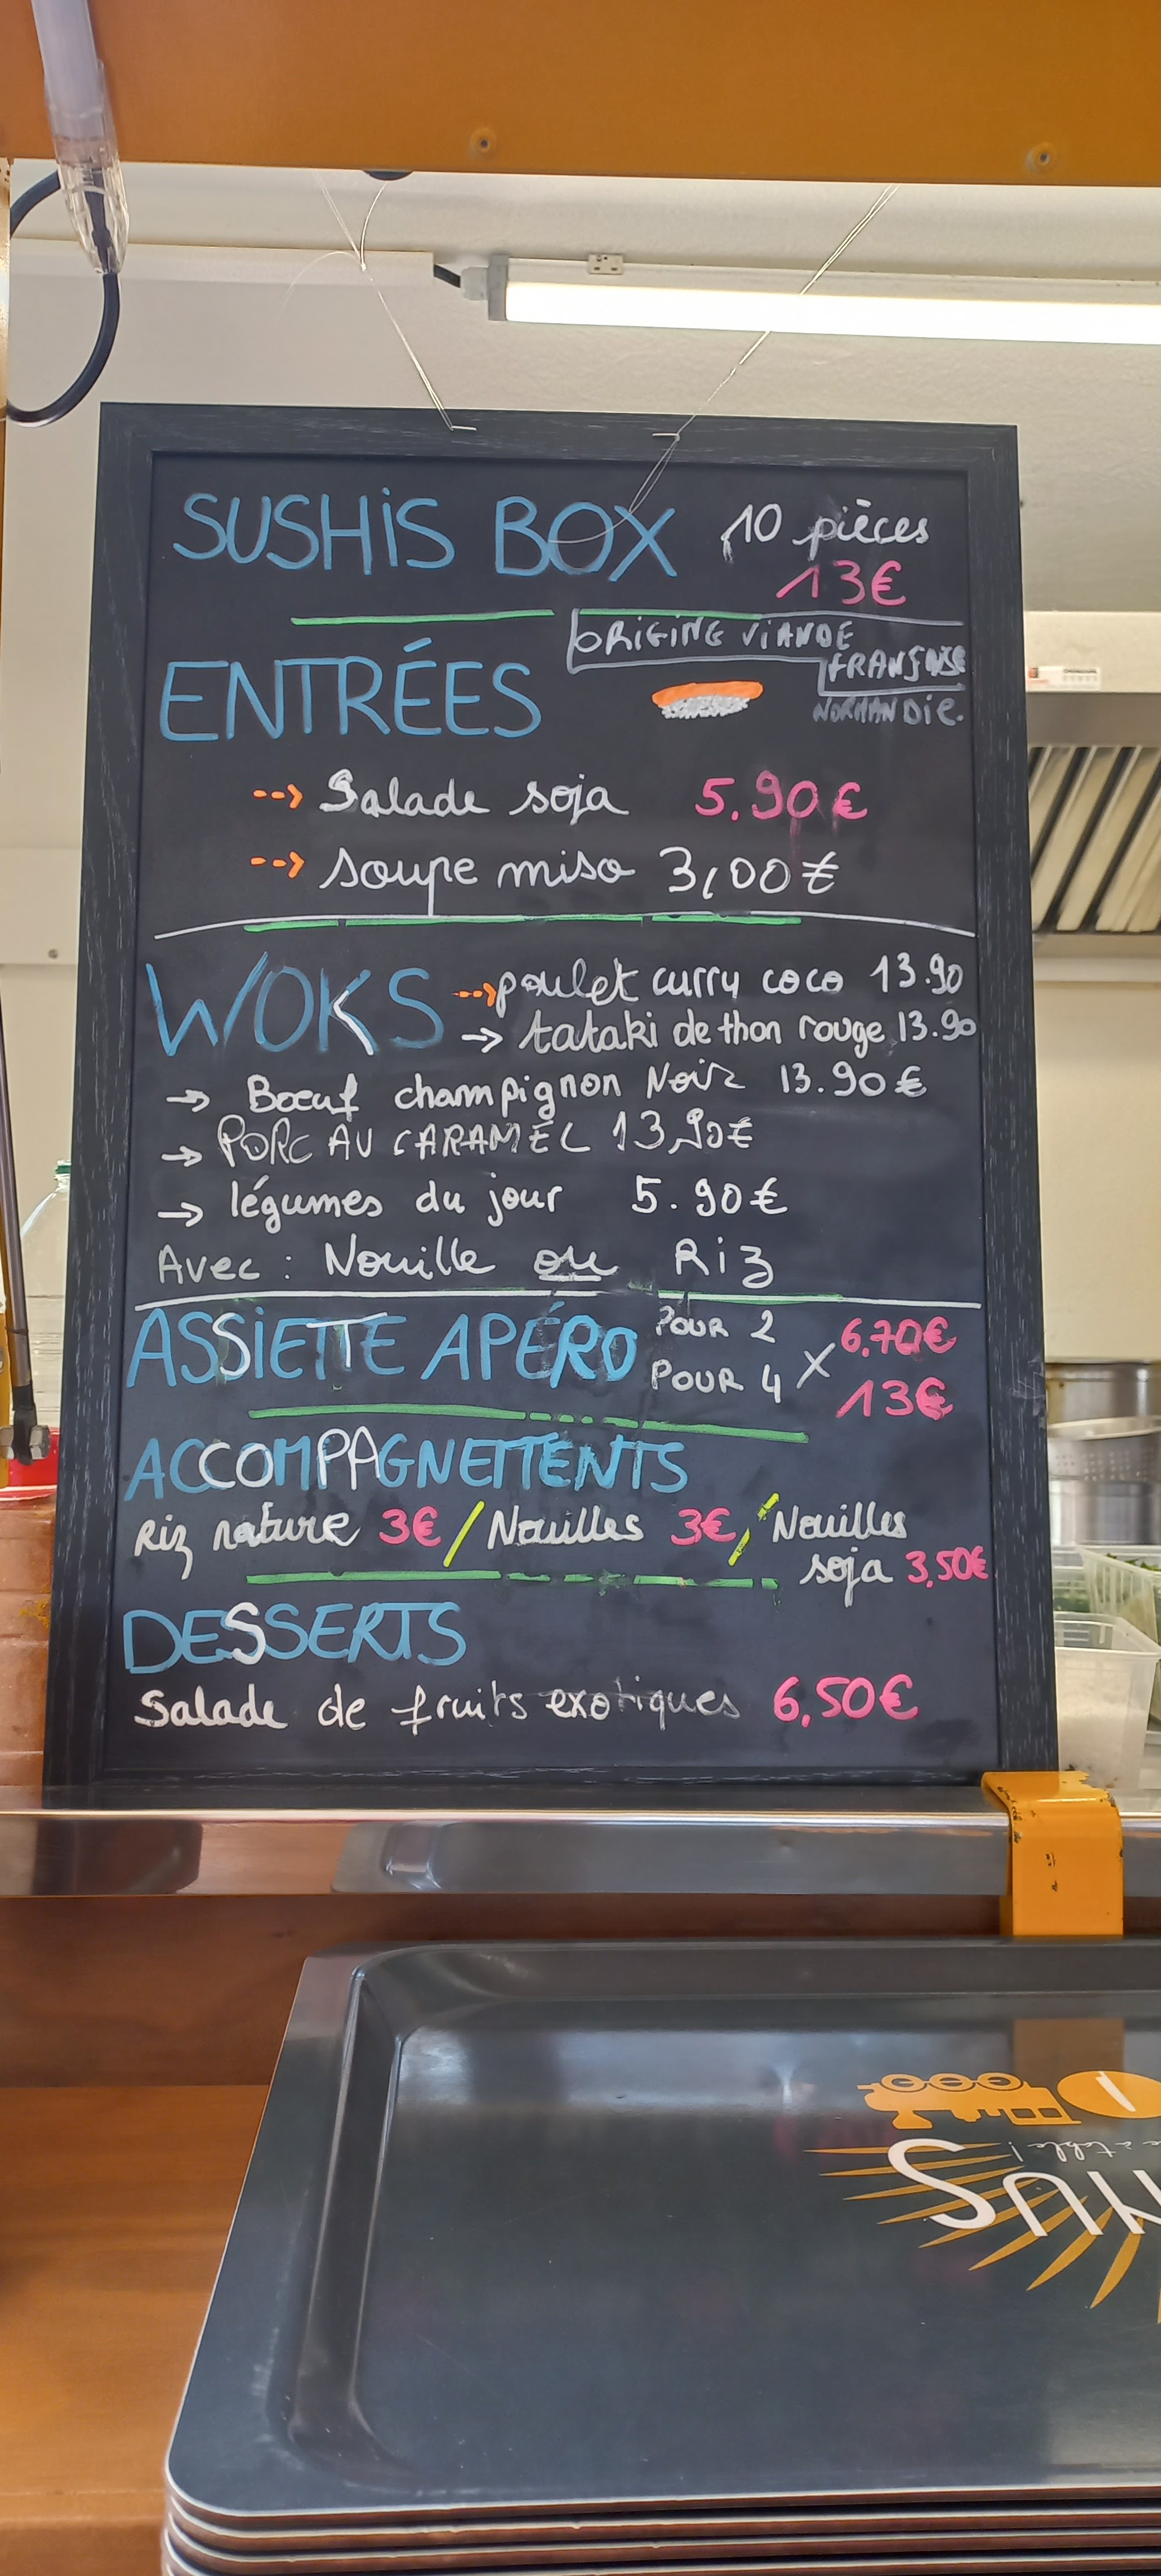 SUSHIS BOX 10 pièces
13€
ORIGINE VIANDE
FRANÇAISE
NORMANDIE.
ENTRÉES
--> Salade soja 5.90€
--> soupe miso 3,00€
WOKS --> poulet curry coco 13.90
→ tataki de thon rouge 13.90
→ Bœuf champignon Noir 13.90€
→ PORC AU CARAMEL 13,90€
→ légumes du jour 5.90€
Avec : Nouille ou Riz
ASSIETTE APÉRO POUR 2 6,70€
POUR 4 X 13€
ACCOMPAGNEMENTS
Riz nature 3€ / Nouilles 3€ / Nouilles
soja 3,50€
DESSERTS
Salade de fruits exotiques 6,50€